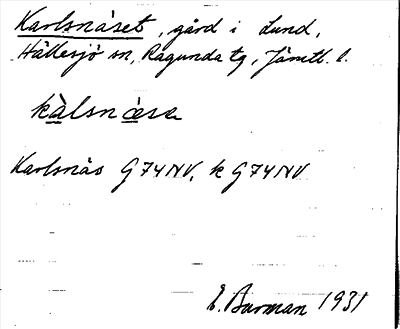 Karlsnäset, gård i Lund,
Hällesjö sn, Ragunda tg, Jämtl. l.
kàlsnæsa
Karlsnäs G74NV, k G74NV
E. Burman 1931